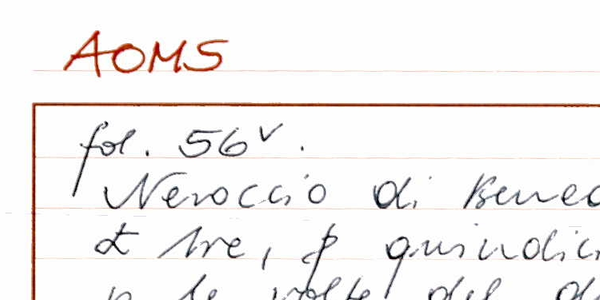 AOMS
fol. 56v.
Neroccio di Bened
£ tre, p quindici
p le volte del d